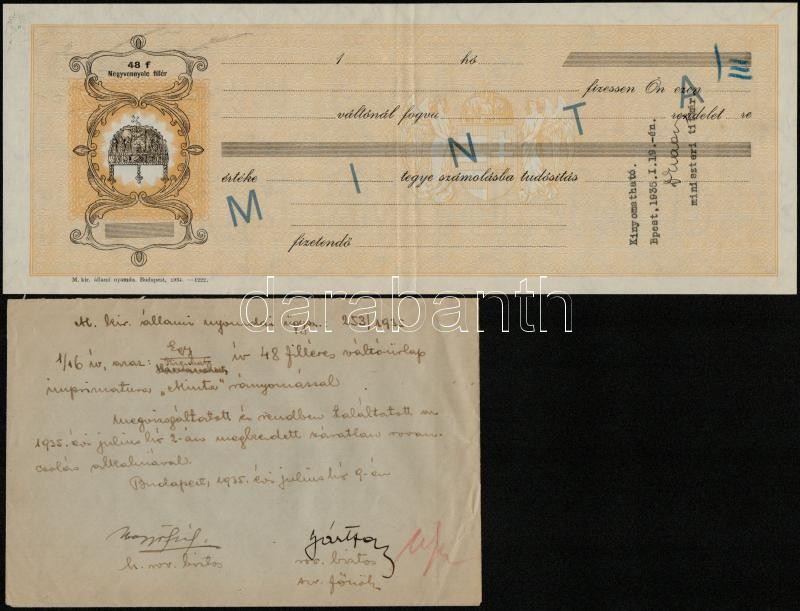 48 f
Negyvennyolc fillér
1 hó
fizessen Ön ezen
váltónál fogva rendelet re
értéke tegye számolásba tudósítás
fizetendő
MINTA
III
Kinyomatható.
Bpest, 1935.I.19.-én.
miniszteri titkár
M. kir. állami nyomda. Budapest, 1934. —1222.
darabanth
M. kir. állami nyomdai 253/1935
1/16 ív, azaz: Egy ív 48 filléres váltóűrlap
imprimatura „Minta" rányomással
megvizsgáltatott és rendben találtatott az
1935. évi július hó 2-án megkezdett váratlan rovan-
csolás alkalmával.
Budapest, 1935. évi július hó 9-én
h. rov. biztos
rov. biztos